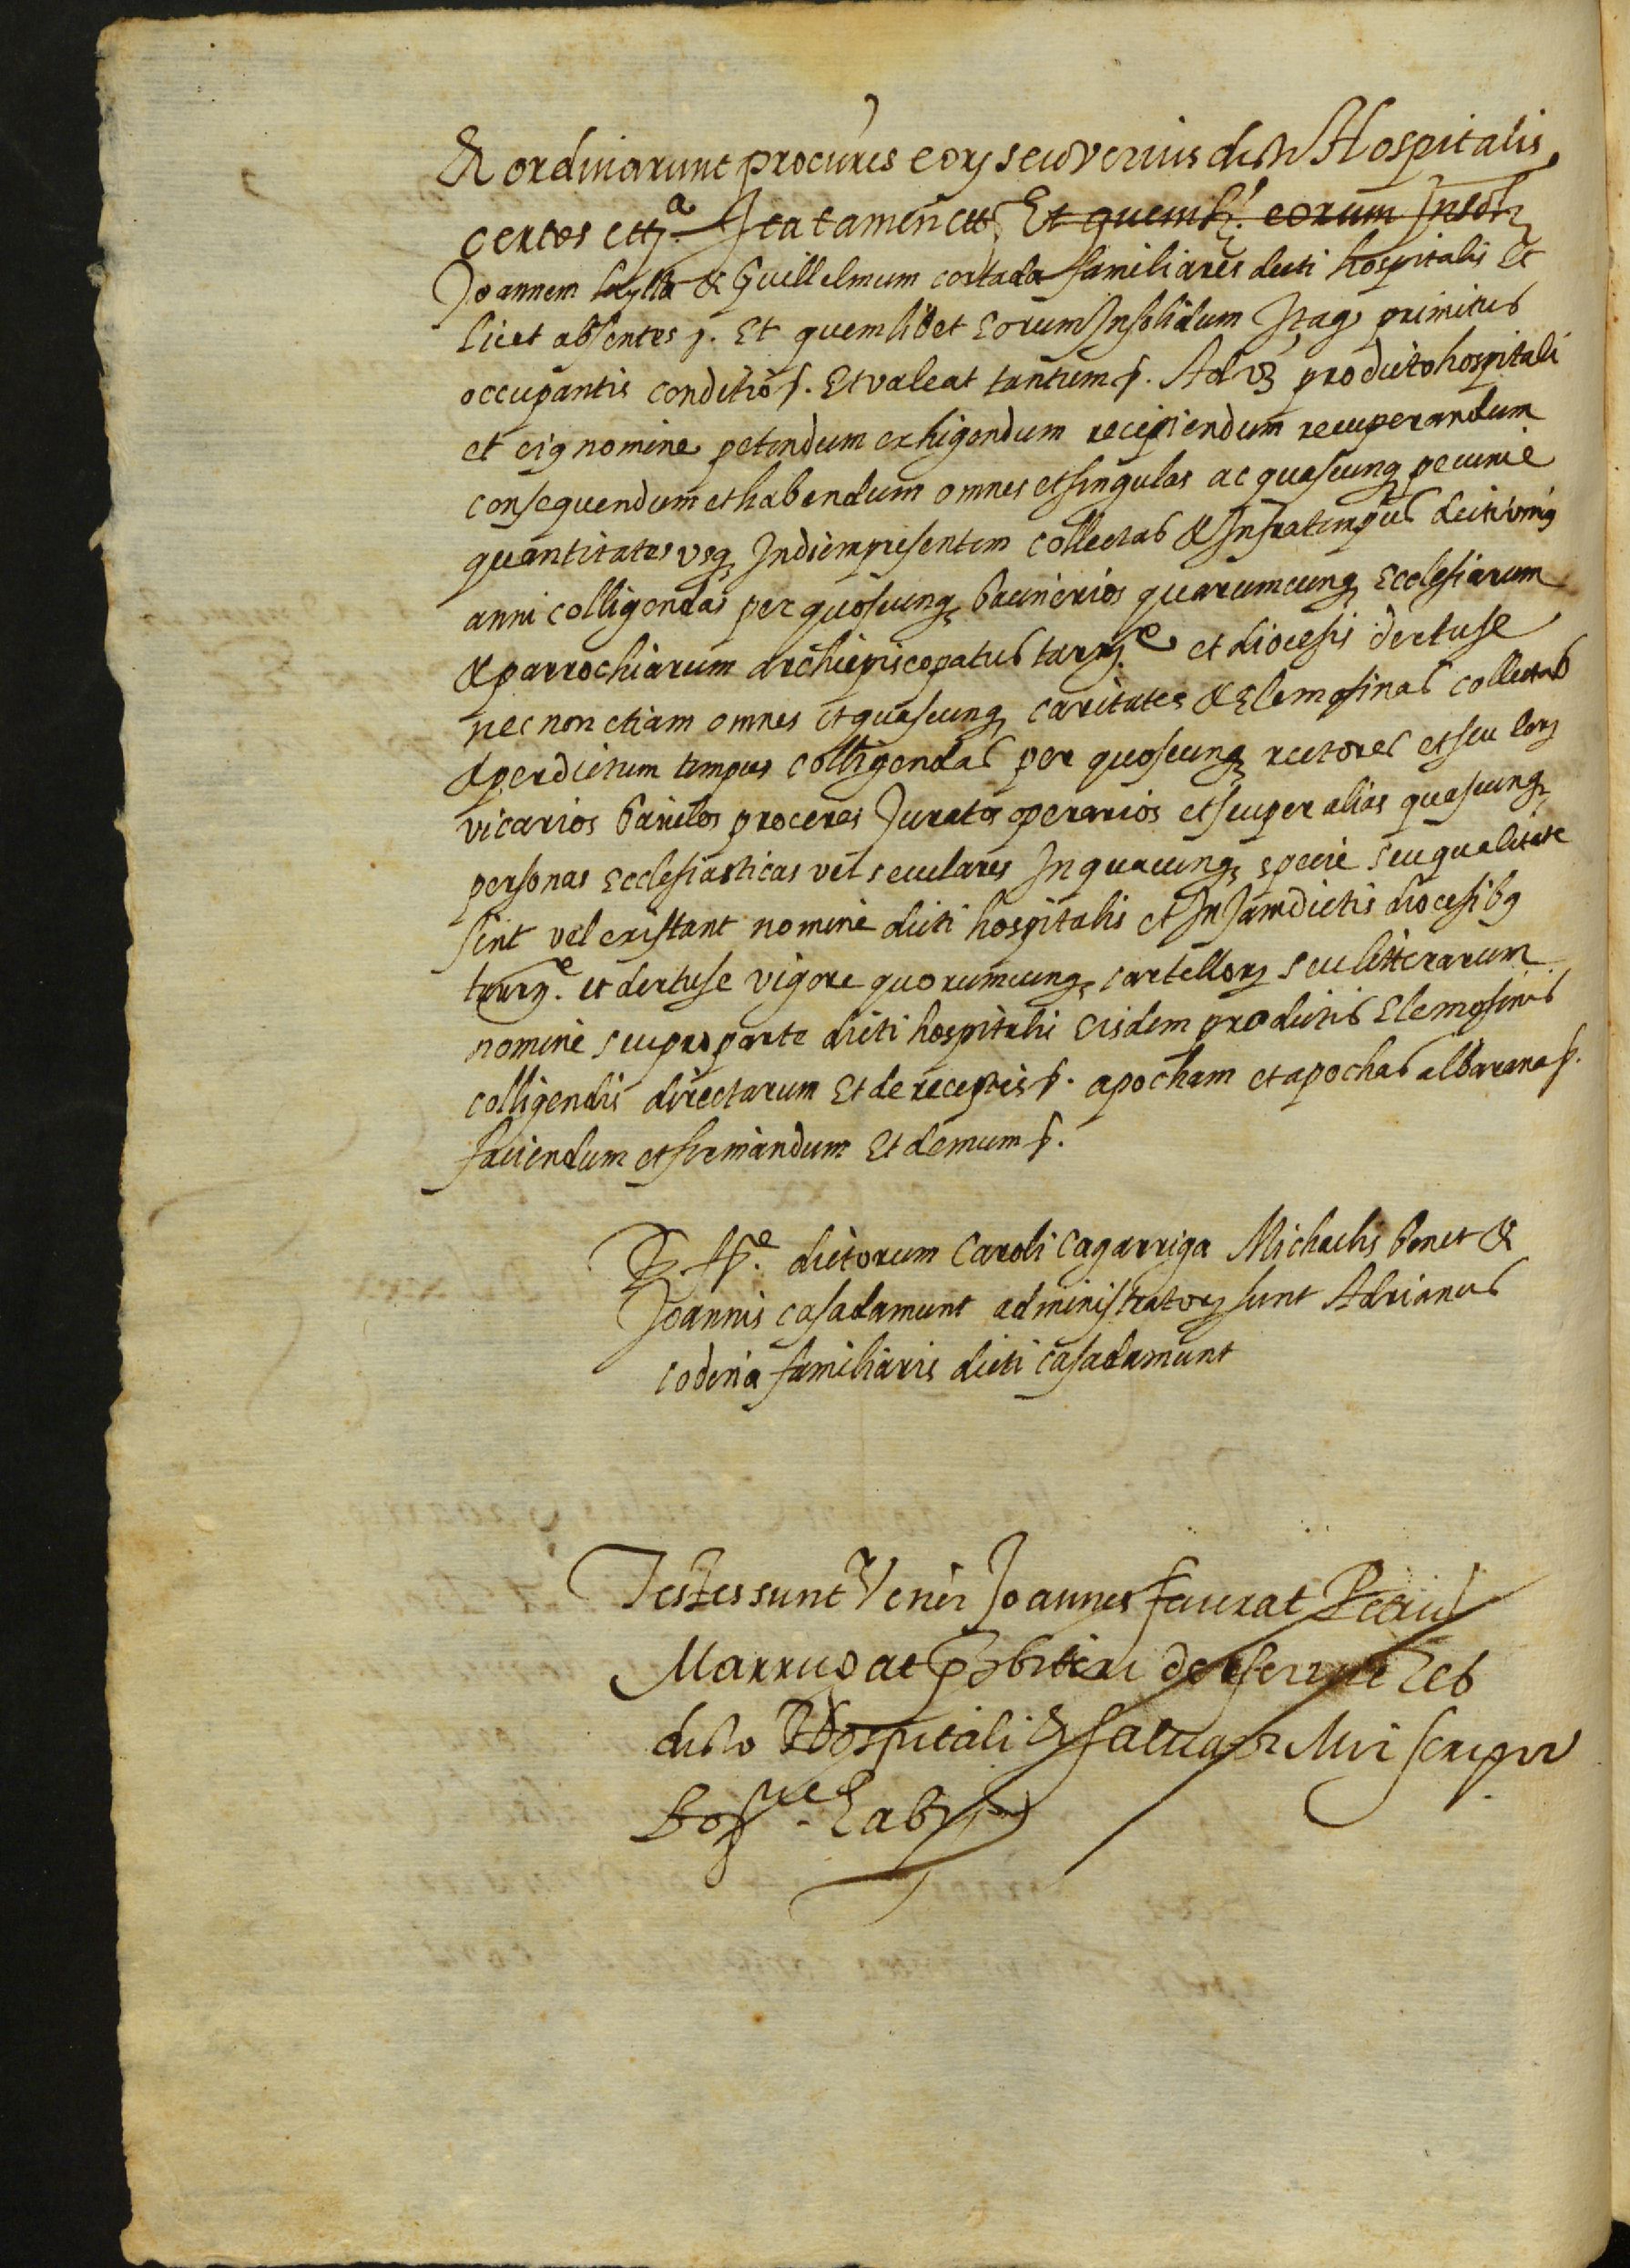 & ordinarunt procures eorȝ seu verius dicti Hospitalis
certos ettȝ.ª Ita tamen ett Et quemlȝ. eorum Insolȝ
Joannem & Guillelmum cortada familiares dicti hospitalis Et
licet absentes p. Et quemlibet Eorum Insolidum Itaqȝ primitus
occupantis conditio p. Et valeat tantum p. Ad vȝ pro dicto hospitali
et eiꝯ nomine petendum exhigendum recipiendum recuperandum
consequendum et habendum omnes et singulas ac quascunqȝ pecunie
quantitates usqȝ Indiempresentem collectas & Infratempus dicti uniꝯ
anni colligendas per quoscunqȝ bacinerios quarumcunqȝ Ecclesiarum
& parrochiarum archiepiscopatus tarrȝ.e et diocesis dertuse
nec non etiam omnes et quascunqȝ caritates & Elemosinas collectas
& perdictum tempus colligendas per quoscunqȝ rectores et seu eorȝ
vicarios baiulos proceres Juratos operarios et super alias quascunqȝ
personas Ecclesiasticas vel seculares In quacunqȝ specie seu qualitate
sint vel existant nomine dicti hospitalis et In Jamdictis diocesibꝯ
tarrȝ.e et dertuse vigore quorumcunqȝ cartellorȝ seu litterarum
nomine seu pro parte dicti hospitalis Eisdem pro dictis Elemosinis
colligendis directarum Et de receptis p. apocham et apochas albarana p.
faciendum et firmandum Et demum p.
dictorum Caroli Cagarriga Michaelis bonet &
Joannis casadamunt administratorȝ sunt Adrianus
codina familiaris dicti casadamunt
Testes sunt Joannes faurat Petrus
Marrugat
dicto Hospitali &